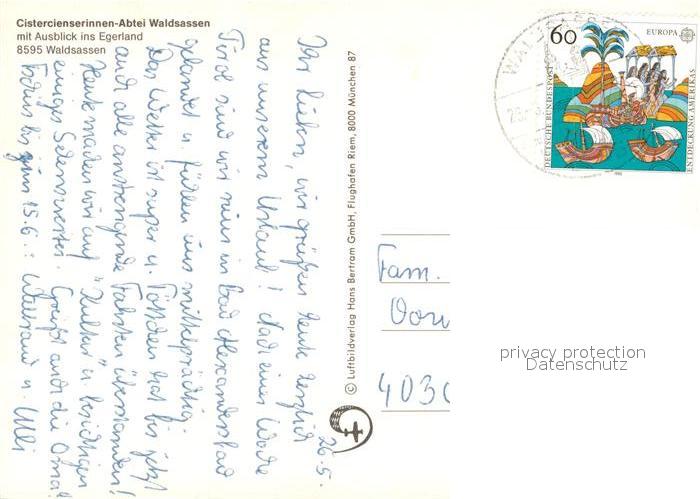 Cistercienserinnen-Abtei Waldsassen
mit Ausblick ins Egerland
8595 Waldsassen
26.5.
Ihr Lieben, wir grüßen heute herzlich
aus unserem Urlaub! Nach einer Woche
Tirol sind wir nun in Bad Alexandersbad
gelandet u. fühlen uns mittelprächtig.
Das Wetter ist super u. Töffchen hat bis jetzt
auch alle anstrengende Fahrten überstanden!
Heute machen wir auf "Kultur" u. besichtigen
einiges Sehenswertes. Grüßt auch die Oma!
Tschüs bis zum 15.6.: Waltraud u. Ulli
© Luftbildverlag Hans Bertram GmbH, Flughafen Riem, 8000 München 87
60
EUROPA
DEUTSCHE BUNDESPOST
ENTDECKUNG AMERIKAS
1992
Fam.
4030
privacy protection
Datenschutz